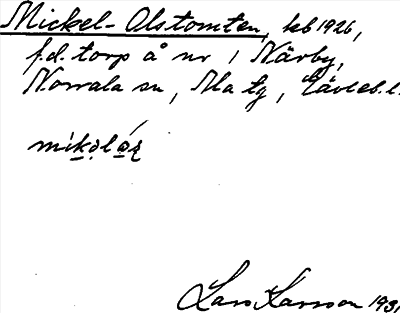 Mickel-Olstomten, kb 1926,
f.d. torp å nr 1 Närby,
Norrala sn, Ala tg, Gävleb. l.
mikolǫ́ʀ
Lars Karsson 1931